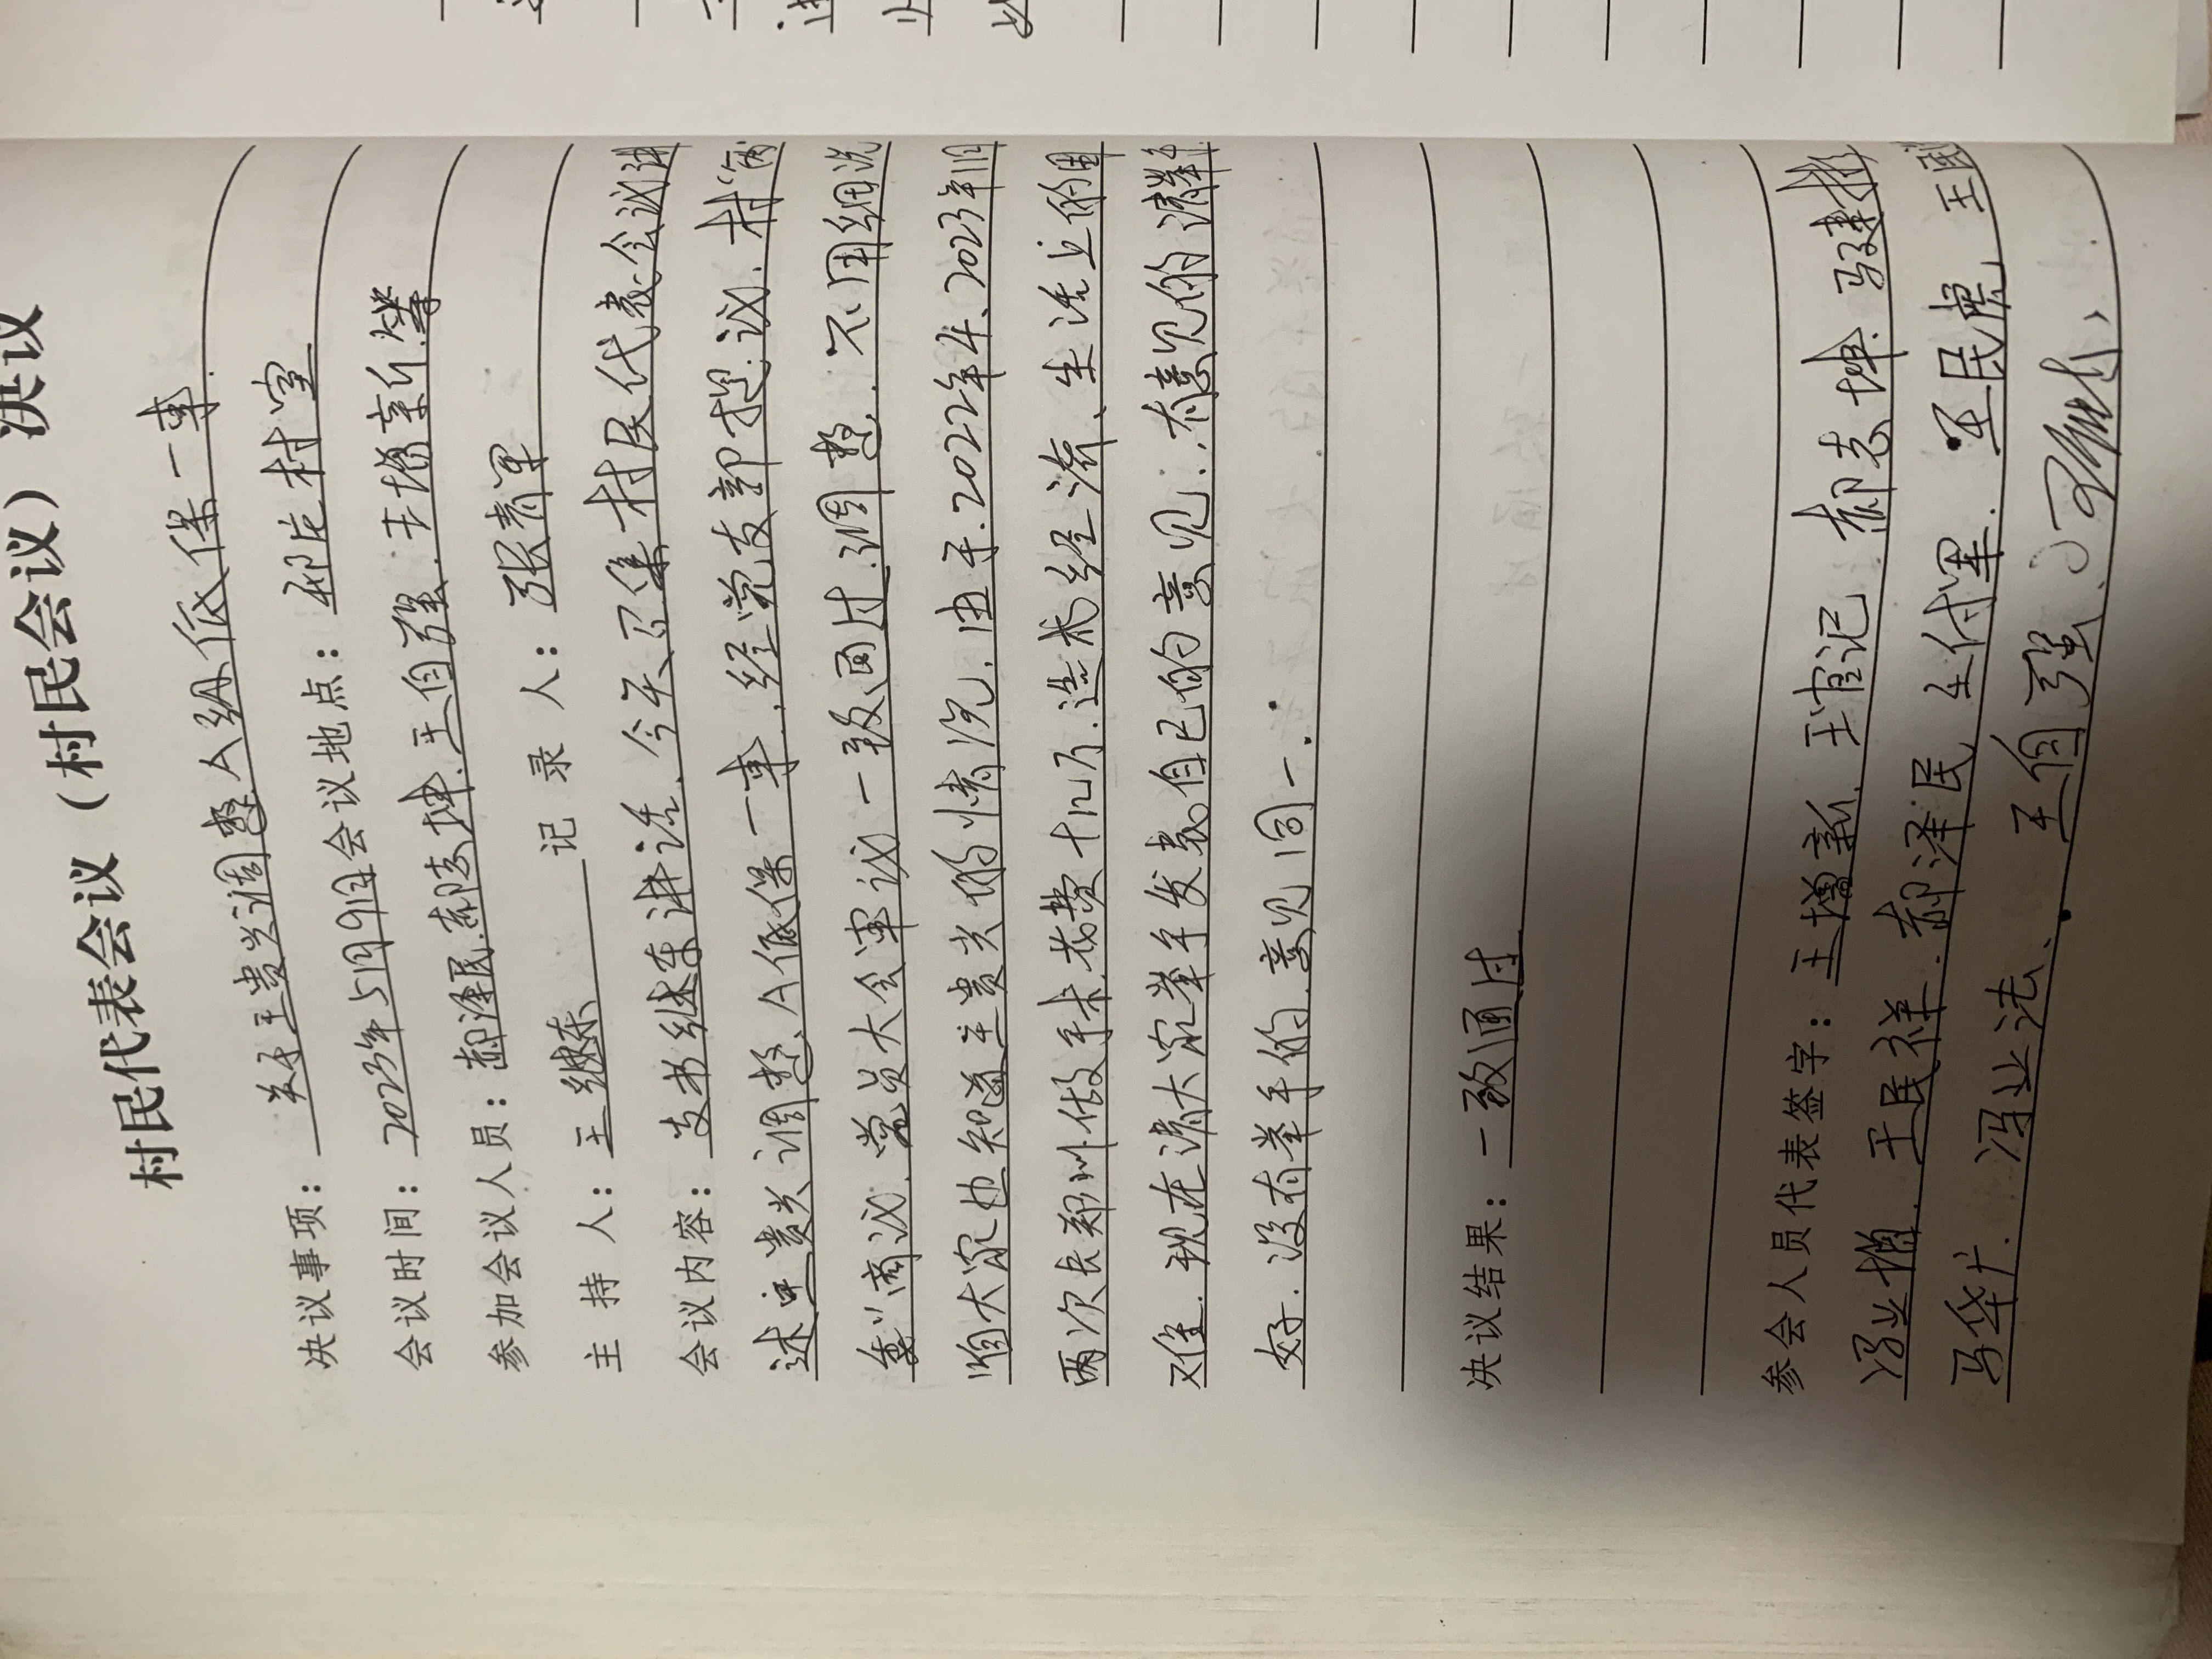 村民代表会议（村民会议）决议
决议事项： 关于王贵兴调整A级低保一事.
会议时间：2023年5月9日会议地点：邢庄村室
参加会议人员：郝泽民.郝志坤.王自强.王增新.等
主持人：王继东 记录人：张青军
会议内容：支书继东讲话.今天召集村民代表会议讲
述王贵兴调整A低保一事,经党支部提议.村“两
委”商议.党员大会审议一致通过调整.不用细说
咱大家也知道王贵兴的情况.由于.2022年年、2023年1月
两次去郑州做手术.花费十几万.造成经济、生活上的困
难.现在请大家举手发表自己的意见..有意见的请举手
好.没有举手的.意见同一.
决议结果：一致通过
参会人员代表签字：王增新、王官记 郝志坤. 马建彬
冯业增.王民祥.郝泽民 王付军.王民虎 王民
马华广.冯业法、王自强、